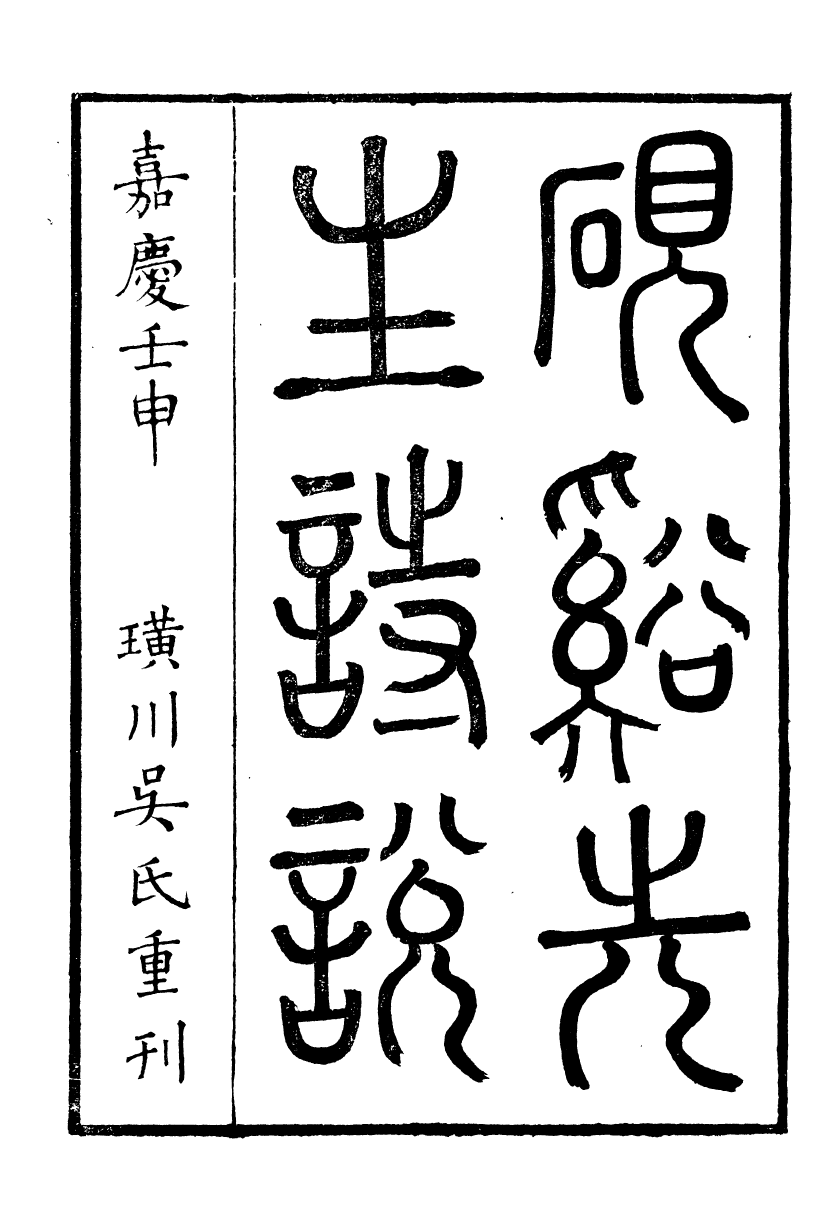 硯谿先
生詩說
嘉慶壬申　璜川吳氏重刊